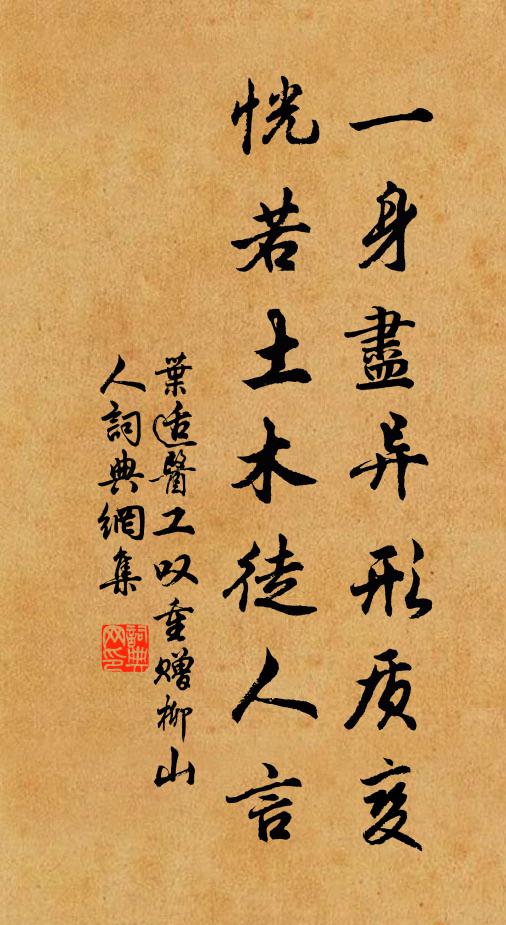 一身盡异形质变
恍若土木徒人言
葉适醫工叹重贈柳山
人詞典網集
詞典网印